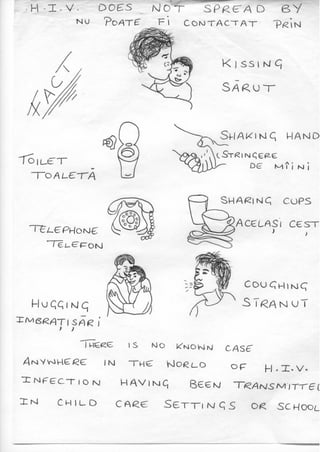 H.I.V. DOES NOT SPREAD BY
NU POATE FI CONTACTAT PRIN
FACT
KISSING
SĂRUT
TOILET
TOALETĂ
SHAKING HAND
STRINGERE
DE MÎINI
TELEPHONE
TELEFON
SHARING CUPS
ACELAȘI CEST
HUGGING
IMBRAȚIȘĂRI
COUGHING
STRANUT
THERE IS NO KNOWN CASE
ANYWHERE IN THE WORLD OF H.I.V.
INFECTION HAVING BEEN TRANSMITTED
IN CHILD CARE SETTINGS OR SCHOOL